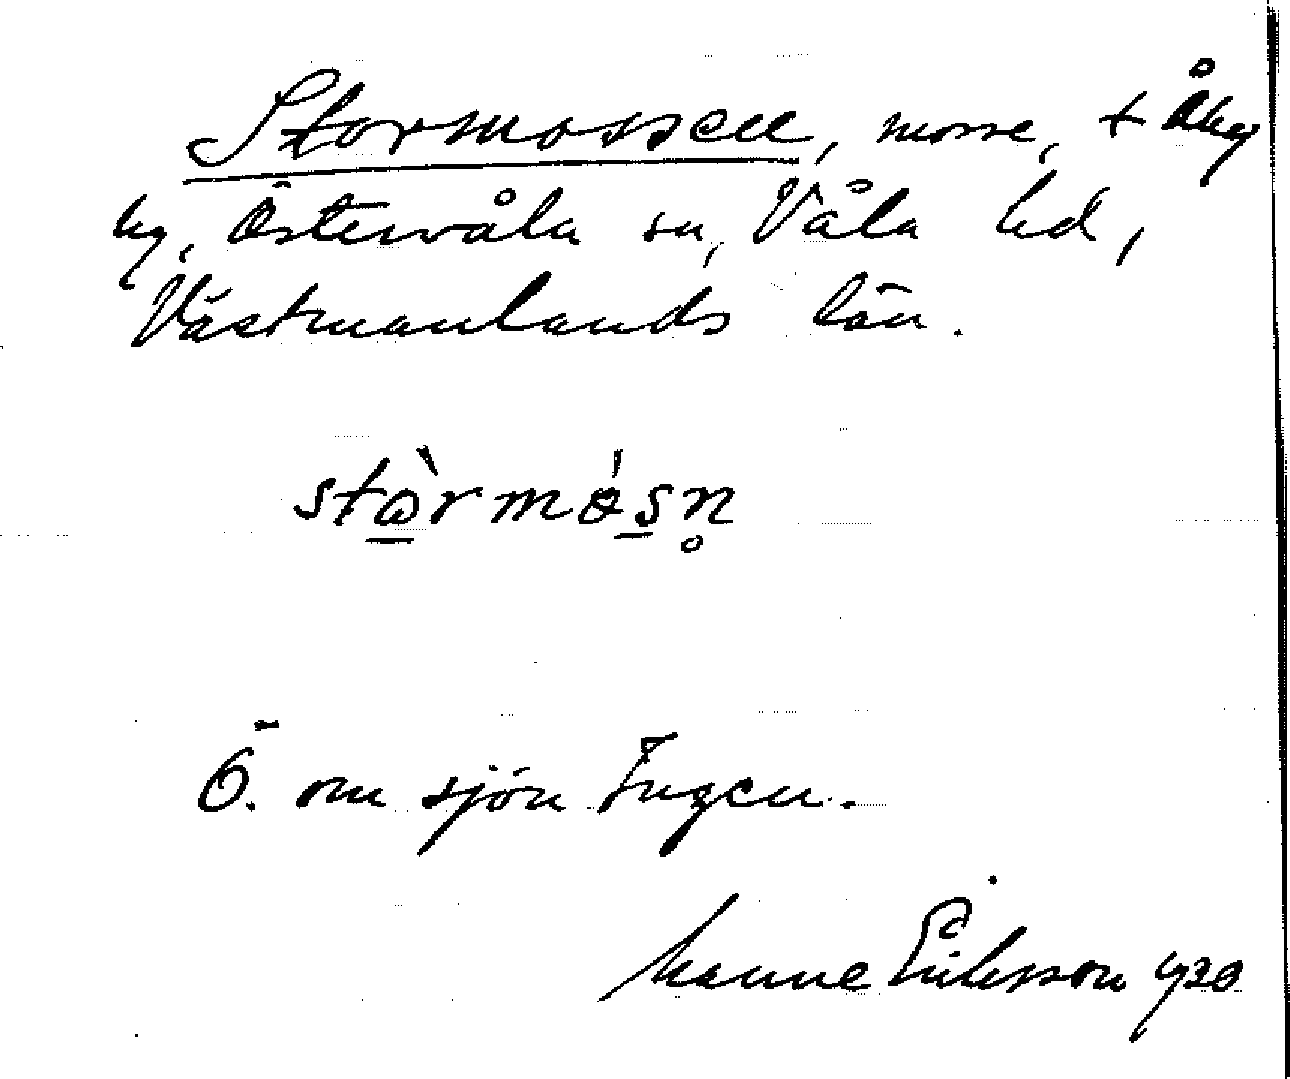 Stormossen, mosse, t Åby
by, Östervåla sn, Våla hd,
Västmanlands län.
stὼ̱rmós̱n̥
Ö. om sjön Tngen.
Manne Eriksson 1920